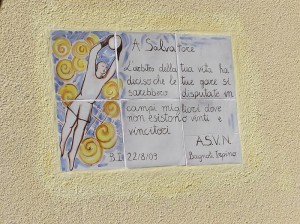 A Salvatore
L'arbitro della tua vita ha
deciso che le tue gare si
sarebbero disputate in
campi migliori dove
non esistono vinti e
vincitori
A.S.V.N.
22/8/09 Bagnoli Irpino